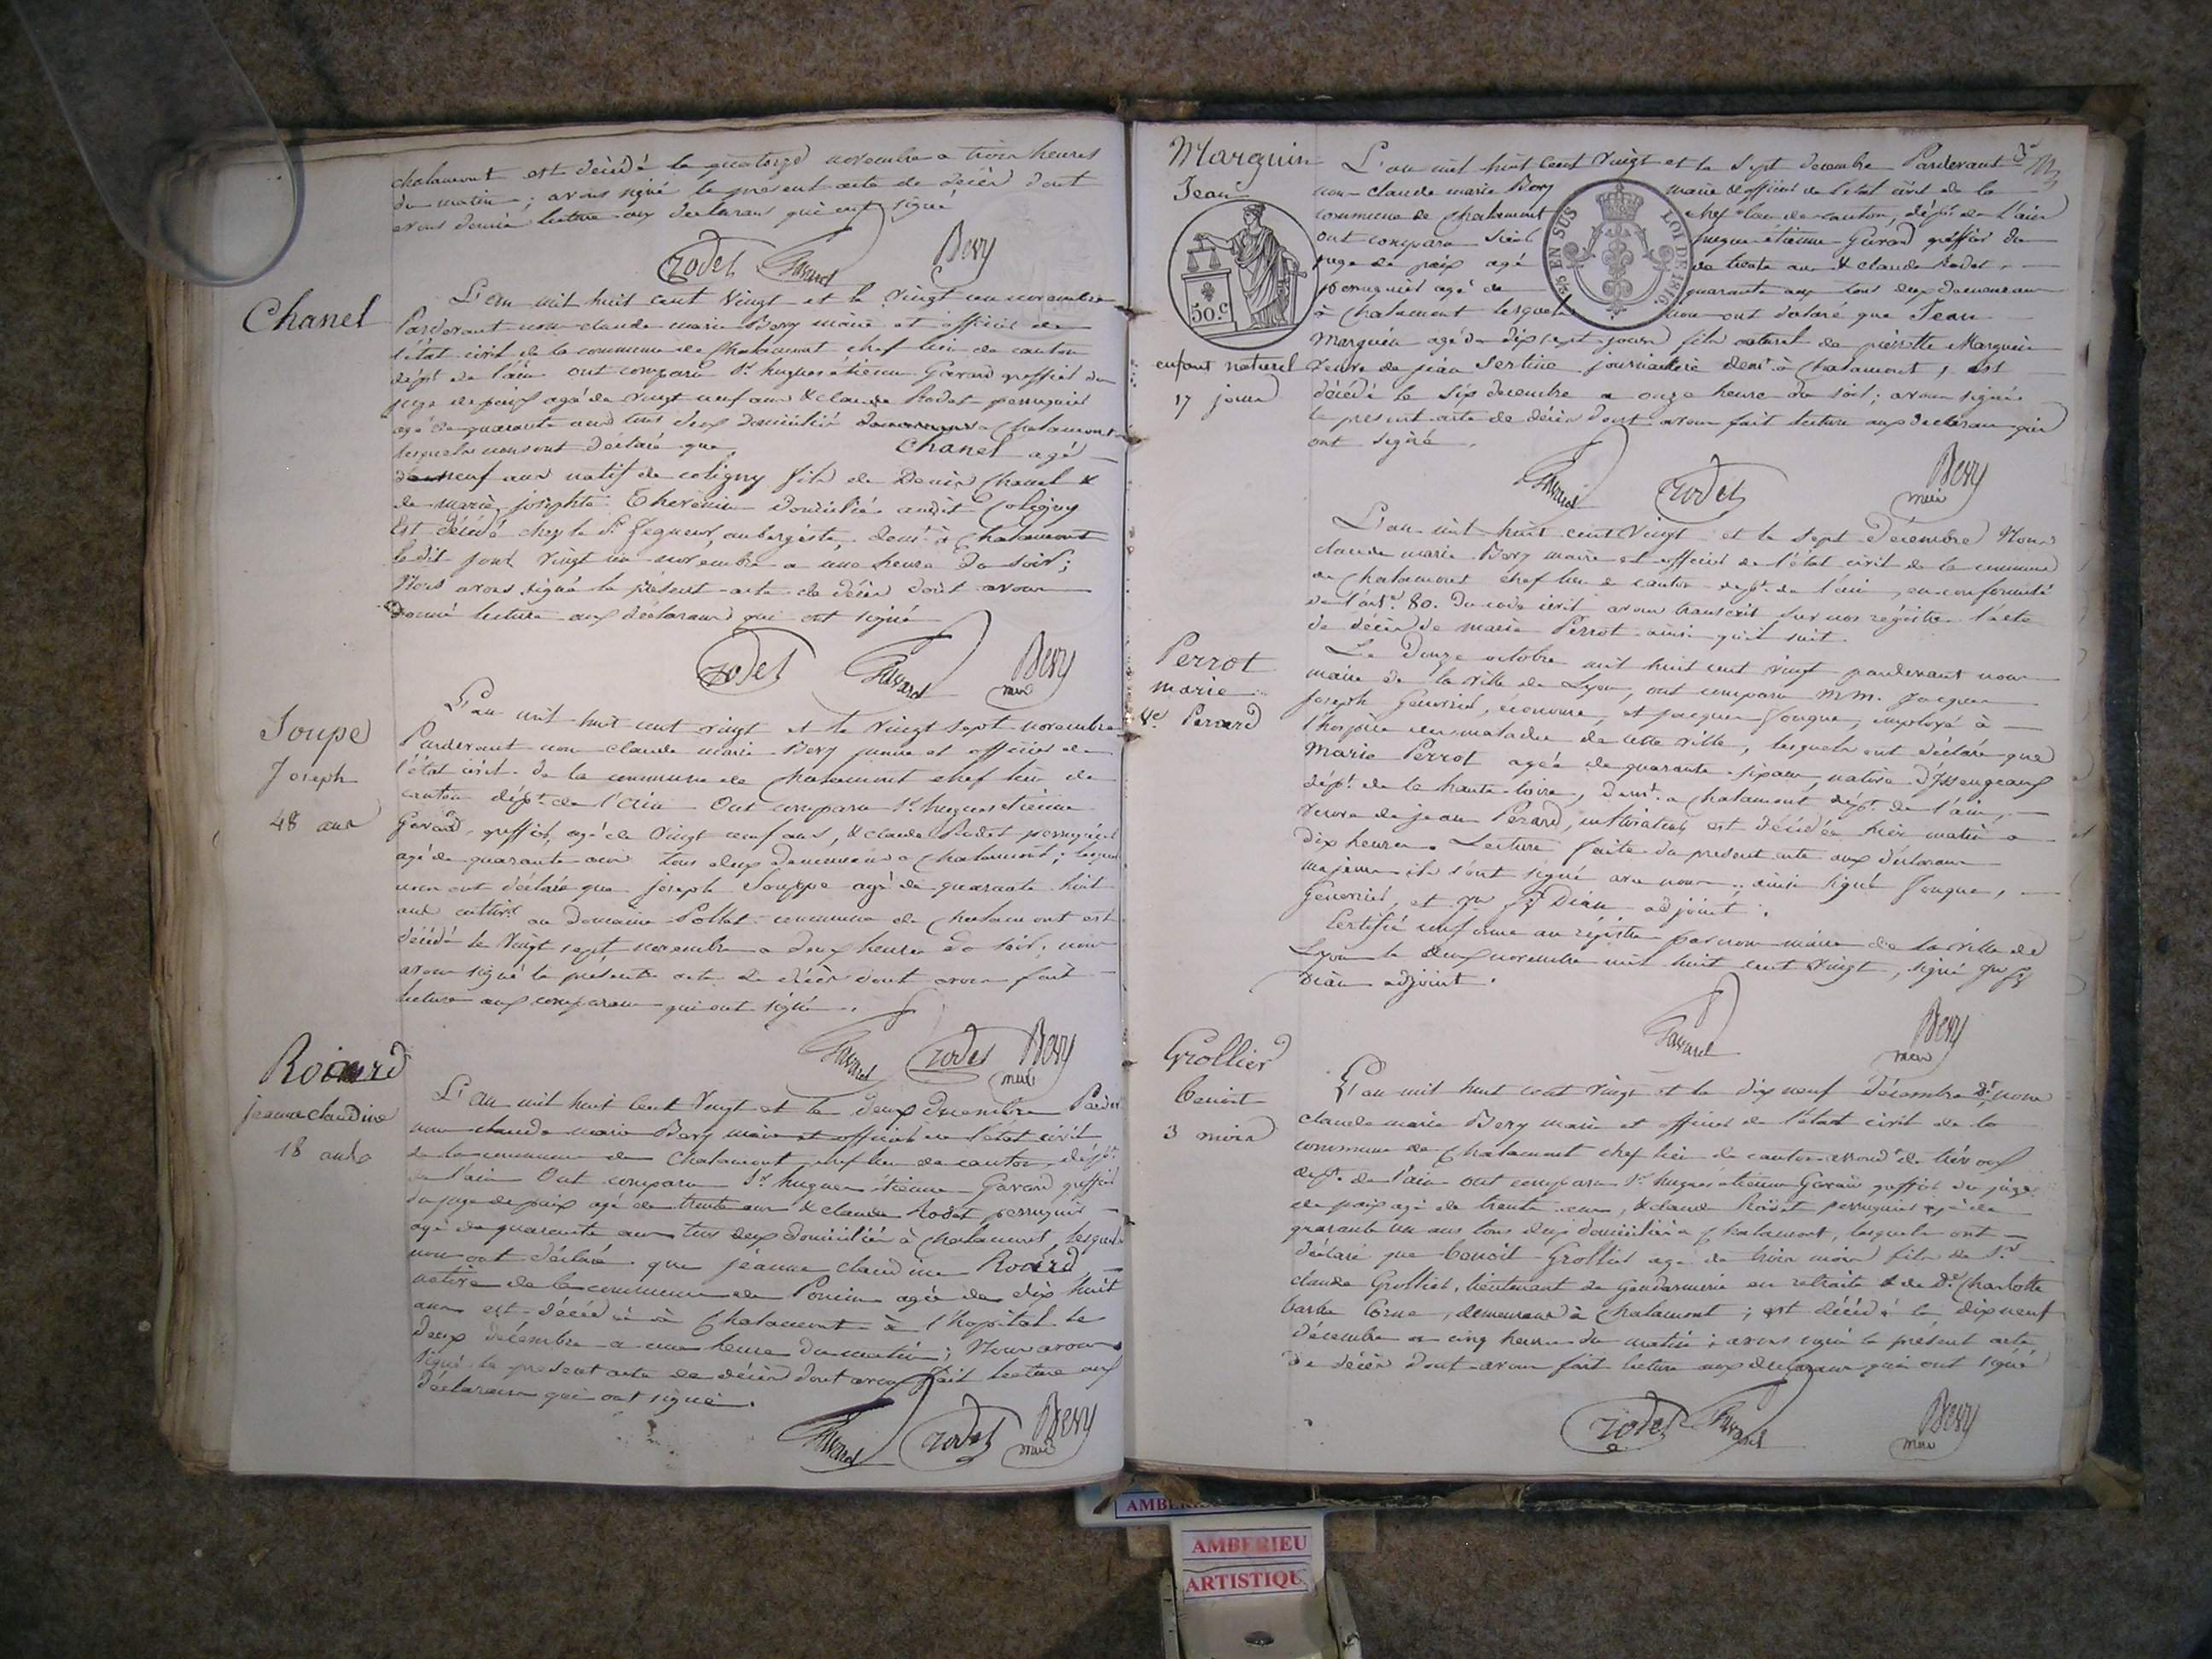 chalamont est décédé le quatorze novembre a trois heures
du matin; avons signé le present acte de décès dont
avons donné lecture aux declarans qui ont signé
Rodet Gavard Bery
Chanel
L'an mil huit cent vingt et le vingt un novembre
Pardevant nous claude marie Bery maire et officier de
l'état civil de la commune de Chalamont chef lieu de canton
dépt. de l'ain ont comparu Sr. hugues étienne Gavard greffier du
juge de paix agé de vingt neuf ans & claude Rodet perruquier
agé de quarante ans tous deux domiciliés a Chalamont
lesquels nous ont declaré que Chanel agé
de neuf ans natif de coligny fils de Denis Chanel &
de marie josephte domiciliés audit Coligny
Est décédé chez le Sr. aubergiste, demt. à Chalamont
le dit jour vingt un novembre a une heure du soir;
Nous avons signé le présent acte de décès dont avons
donné lecture aux déclarans qui ont signé
Rodet Gavard Bery
maire
Soupe
Joseph
48 ans
L'an mil huit cent vingt et le vingt sept novembre
Pardevant nous claude marie Bery maire et officier de
l'état civil de la commune de Chalamont chef lieu de
canton dépt. de l'ain Ont comparu Sr. hugues etienne
Gavard, greffier, agé de vingt neuf ans, & claude Rodet perruquier
agé de quarante ans tous deux demeurans a Chalamont; lesquels
nous ont déclaré que joseph Souppe agé de quarante huit
ans cultivr. au domaine Pollet commune de Chalamont est
décédé le vingt sept novembre a deux heures du soir; nous
avons signé le présente acte de décès dont avons fait
lecture aux comparans qui ont signé.
Gavard Rodet Bery
maire
jeanne claudine
18 ans
L'an mil huit cent vingt et le deux decembre Pardev
nous claude marie Bery maire et officier de l'état civil
de la commune de Chalamont chef lieu de canton, dépt.
de l'ain Ont comparu Sr. hugues étienne Gavard greffier
du juge de paix agé de trente ans & claude Rodet perruquier
agé de quarante ans tous deux domiciliés à Chalamont, lesquels
nous ont déclaré que jeanne claudine
native de la commune de Poncin agée de dix huit
ans est décédée à Chalamont à l'hopital le
deux décembre a une heure du matin; Nous avons
signé le present acte de décès dont avons fait lecture aux
déclarans qui ont signé.
Gavard Rodet Bery
maire
Marguin
Jean
50.c
EN SUS LOI DE 1816.
enfant naturel
17 jours
L'an mil huit cent vingt et le sept decembre Pardevant
nous claude marie Bery maire & officier de l'état civil de la
commune de Chalamont chef lieu de canton, dépt. de l'ain
ont comparu Sieur hugues étienne Gavard greffier du
juge de paix agé de trente ans & claude Rodet,
perruquier agé de quarante ans tous deux demeurans
à Chalamont lesquels nous ont déclaré que Jean
Marguin agé de dix sept jours fils naturel de pierrette Marguin
veuve de jean journaliere demt. à Chalamont, est
décédé le six decembre a onze heures du soir; avons signé
le present acte de décès dont avons fait lecture aux declarans qui
ont signé.
Gavard Rodet Bery
maire
L'an mil huit cent vingt et le sept Décembre Nous
claude marie Bery maire et officier de l'état civil de la commune
de Chalamont chef lieu de canton dépt. de l'ain, en conformité
de l'art. 80. du code civil avons transcrit sur nos régistres l'acte
de décès de marie Perrot ainsi qu'il suit.
Perrot
marie
Ve. Perard
Le douze octobre mil huit cent vingt pardevant nous
maire de la ville de Lyon, ont comparu MM. Jacques
joseph économe, et jacques employé à
l'hospice des malades de cette ville, lesquels ont déclaré que
Marie Perrot agée de quarante six ans, native d'Issengeaux
dépt. de la haute loire, demt. a Chalamont, dépt. de l'ain,
veuve de jean Perard, cultivateur est décédée hier matin a
dix heures. Lecture faite du present acte aux déclarans
majeurs ils l'ont signé avec nous. ainsi signé
et Dian adjoint.
Certifié conforme au régistre par nous maire de la ville de
Lyon le deux novembre mil huit cent vingt, signé
Dian adjoint.
Gavard Bery
maire
Grollier
benoit
3 mois
L'an mil huit cent vingt et le dix neuf décembre nous
claude marie Bery maire et officier de l'état civil de la
commune de Chalamont chef lieu de canton arrondt. de trévoux
dépt. de l'ain ont comparu Sr. hugues etienne Gavard greffier du juge
de paix agé de trente ans, & claude Rodet perruquier agé de
quarante un ans tous deux domiciliés a Chalamont, lesquels ont
déclaré que benoit Grollier agé de trois mois fils de Sr.
claude Grollier, lieutenant de Gendarmerie en retraite & de De. Charlotte
barbe Corne, demeurans à Chalamont; est décédé le dix neuf
décembre a cinq heures du matin; avons signé le présent acte
de décès dont avons fait lecture aux declarans qui ont signé
Rodet Gavard Bery
maire
AMBERIEU
ARTISTIQU